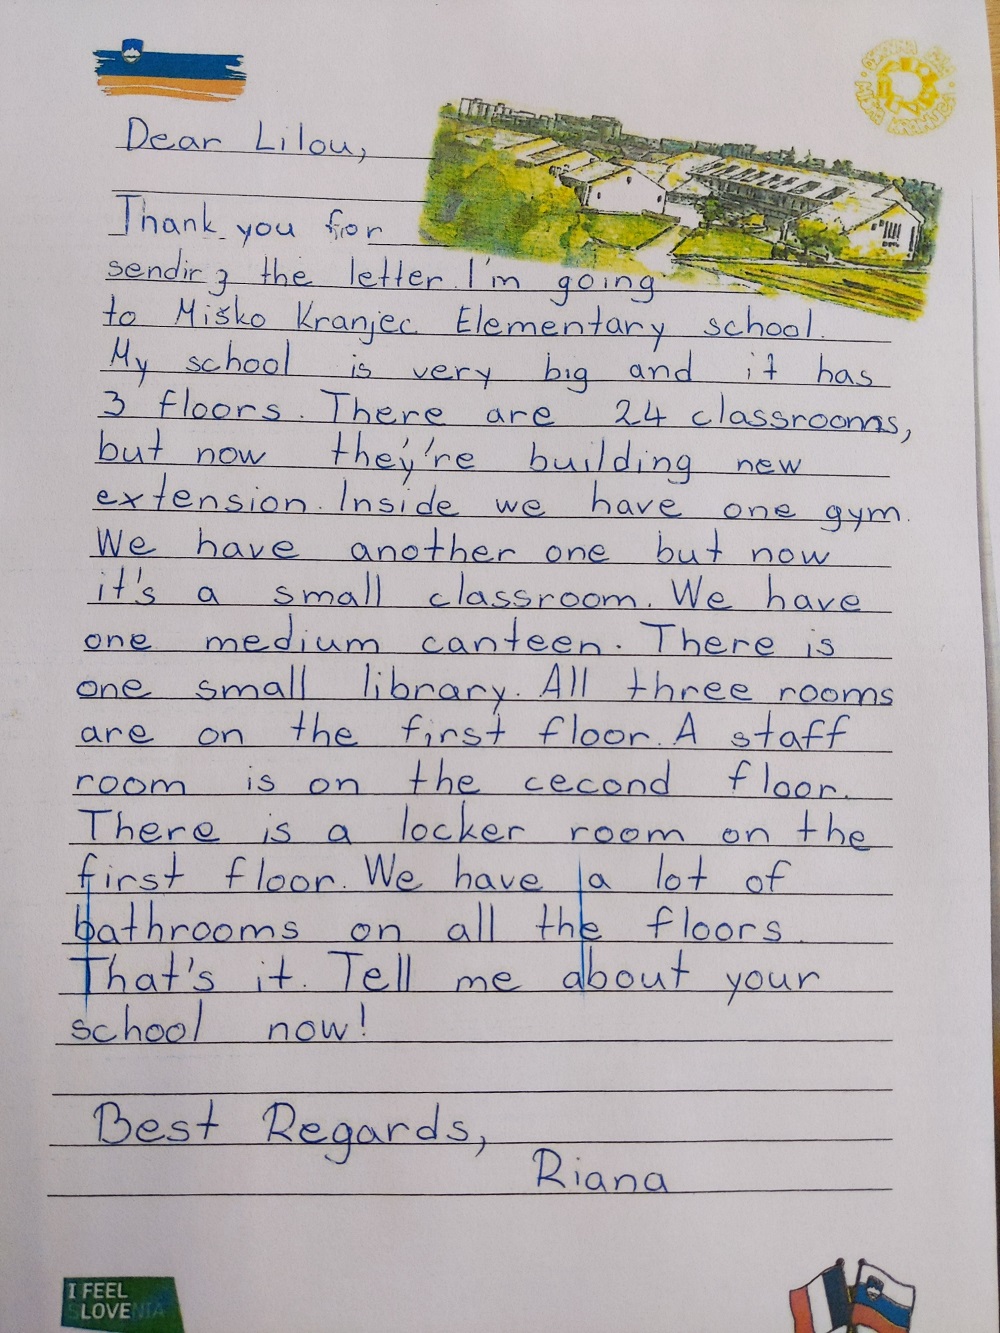 Dear Lilou,
Thank you for
sending the letter. I'm going
to Miško Kranjec Elementary school.
My school is very big and it has
3 floors. There are 24 classrooms,
but now they're building new
extension. Inside we have one gym.
We have another one but now
it's a small classroom. We have
one medium canteen. There is
one small library. All three rooms
are on the first floor. A staff
room is on the cecond floor.
There is a locker room on the
first floor. We have a lot of
bathrooms on all the floors.
That's it. Tell me about your
school now!
Best Regards,
Riana
I FEEL
SLOVENIA